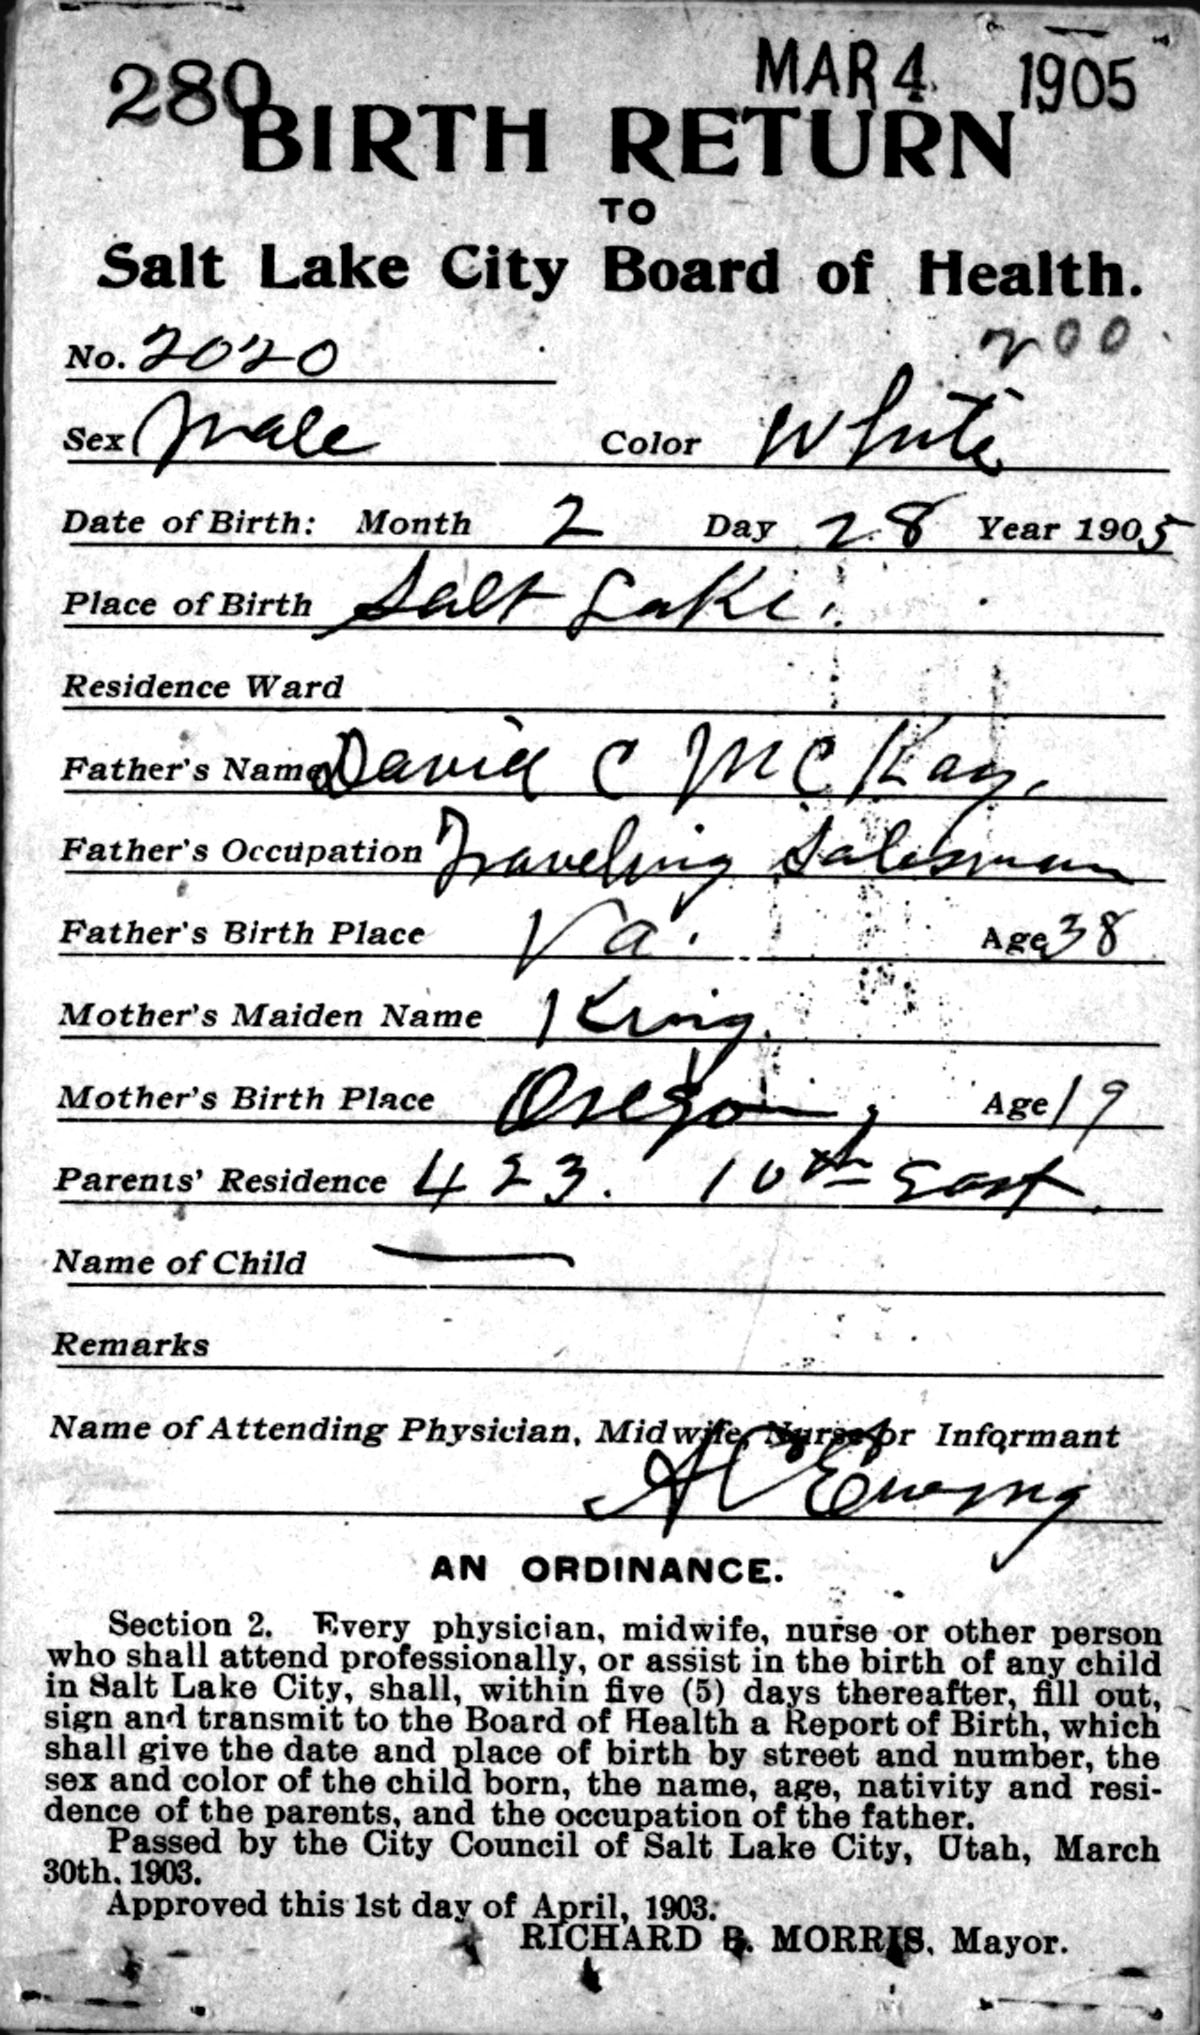 280 MAR 4 1905
BIRTH RETURN
TO
Salt Lake City Board of Health.
200
No. 2020
Sex Male Color White
Date of Birth: Month 2 Day 28 Year 1905
Place of Birth Salt Lake.
Residence Ward
Father's Name David C McKay.
Father's Occupation Traveling Salesman
Father's Birth Place Va. Age 38
Mother's Maiden Name King.
Mother's Birth Place Oregon, Age 19
Parents' Residence 423. 10th East.
Name of Child —
Remarks
Name of Attending Physician, Midwife, Nurse or Informant
A C Ewing
AN ORDINANCE.
Section 2. Every physician, midwife, nurse or other person
who shall attend professionally, or assist in the birth of any child
in Salt Lake City, shall, within five (5) days thereafter, fill out,
sign and transmit to the Board of Health a Report of Birth, which
shall give the date and place of birth by street and number, the
sex and color of the child born, the name, age, nativity and resi-
dence of the parents, and the occupation of the father.
Passed by the City Council of Salt Lake City, Utah, March
30th, 1903.
Approved this 1st day of April, 1903.
RICHARD B. MORRIS, Mayor.